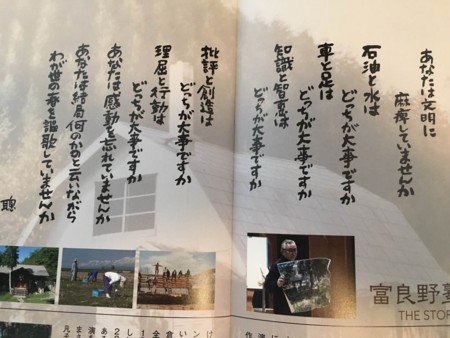 あなたは文明に
麻痺していませんか
石油と水は
どっちが大事ですか
車と足は
どっちが大事ですか
知識と智恵は
どっちが大事ですか
批評と創造は
どっちが大事ですか
理屈と行動は
どっちが大事ですか
あなたは感動を忘れていませんか
あなたは結局何のかのと云いながら
わが世の春を謳歌していませんか
聰
富良野塾
THE STOR